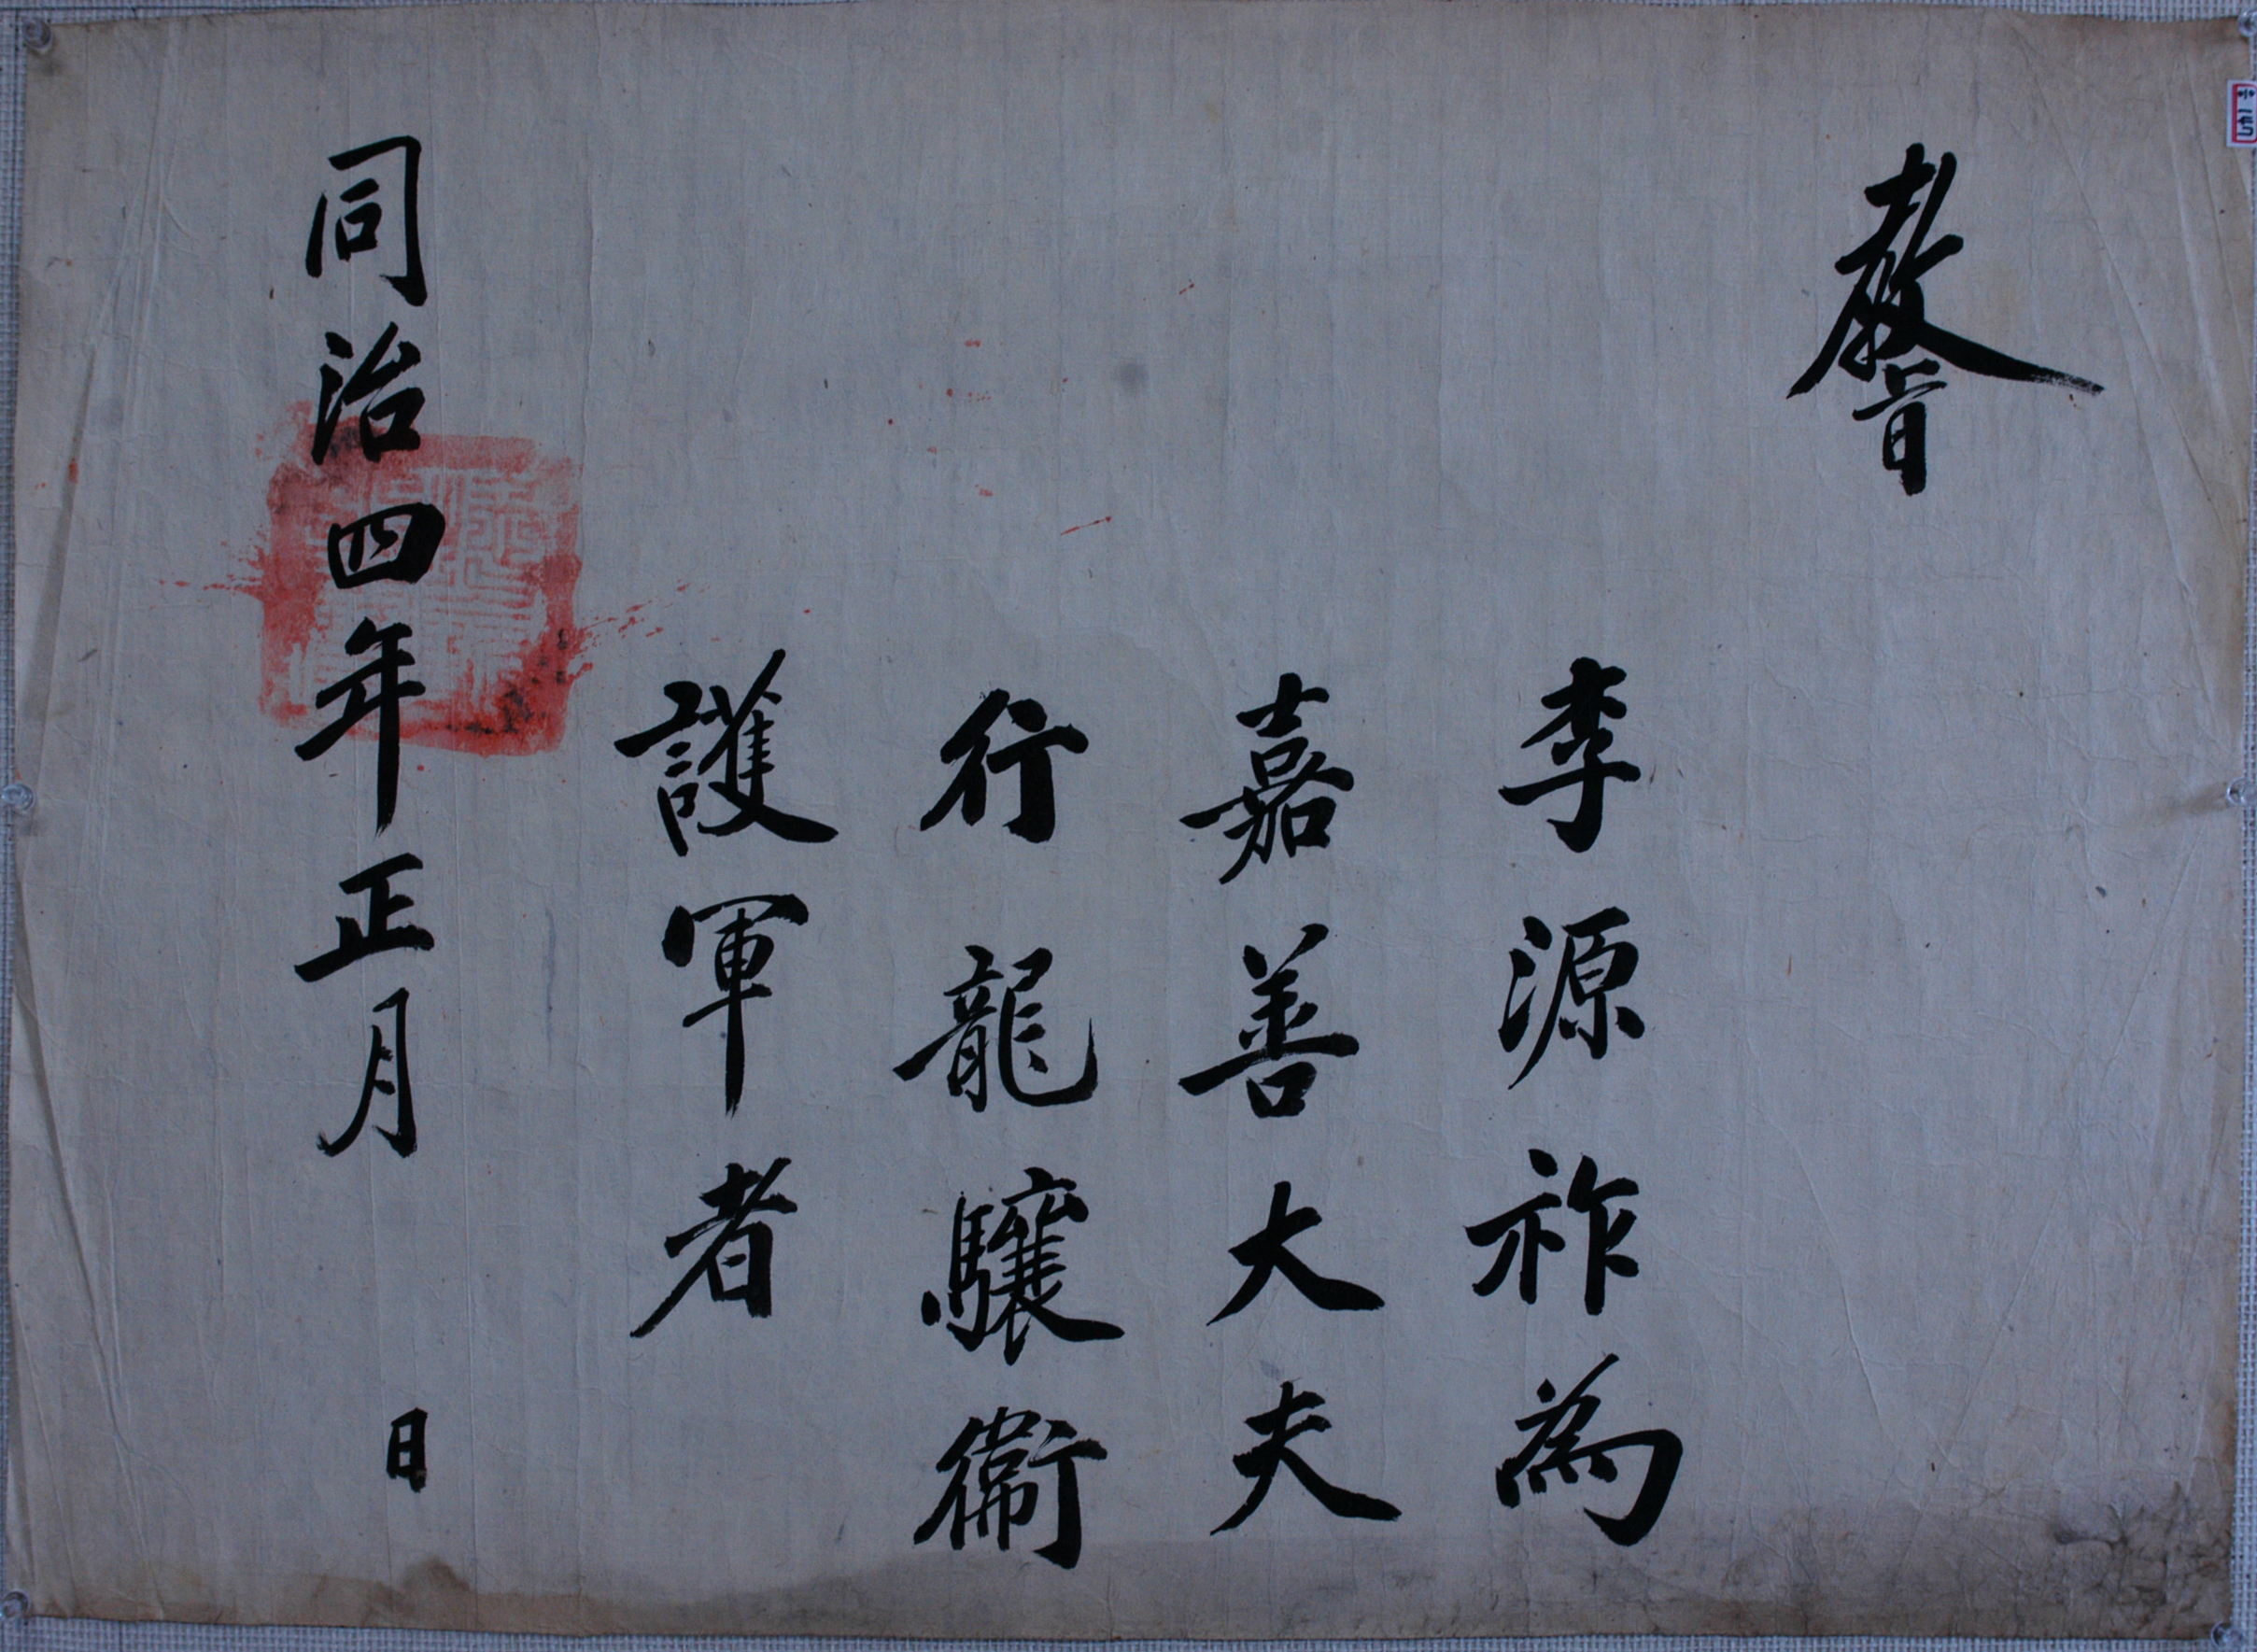 敎旨
李源祚為
嘉善大夫
行龍驤衛
護軍者
同治四年正月　日